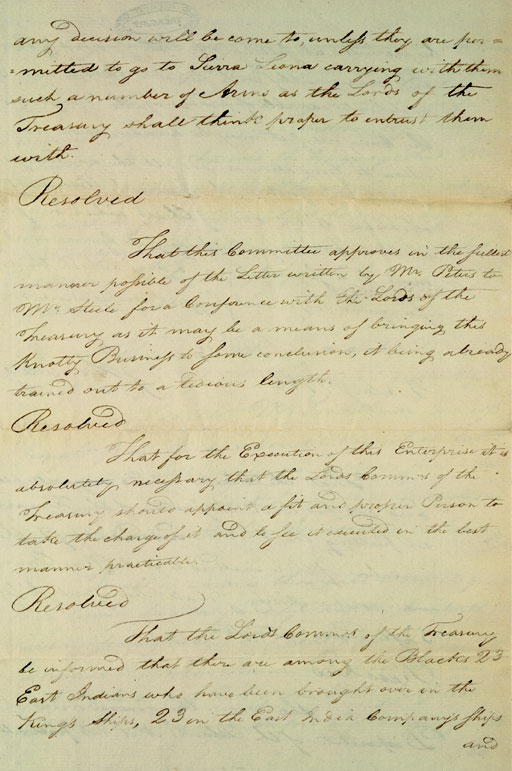 any decision will be come to, unless they are per=
=mitted to go to Sierra Leona carrying with them
such a number of Arms as the Lords of the
Treasury shall think proper to entrust them
with.
Resolved
That this Committee approves in the fullest
manner possible of the Letter written by Mr. Peters to
Mr. Steele for a Conference with the Lords of the
Treasury as it may be a means of bringing this
Knotty Business to some conclusion, it being already
trained out to a tedious length.
Resolved
That for the Execution of this Enterprise it is
absolutely necessary that the Lords Commrs of the
Treasury should appoint a fit and proper Person to
take the charge of it and to see it executed in the best
manner practicable.
Resolved
That the Lords Commrs of the Treasury
be informed that there are among the Blacks 23
East Indians who have been brought over in the
Kings Ships, 23 in the East India Company's Ships
and